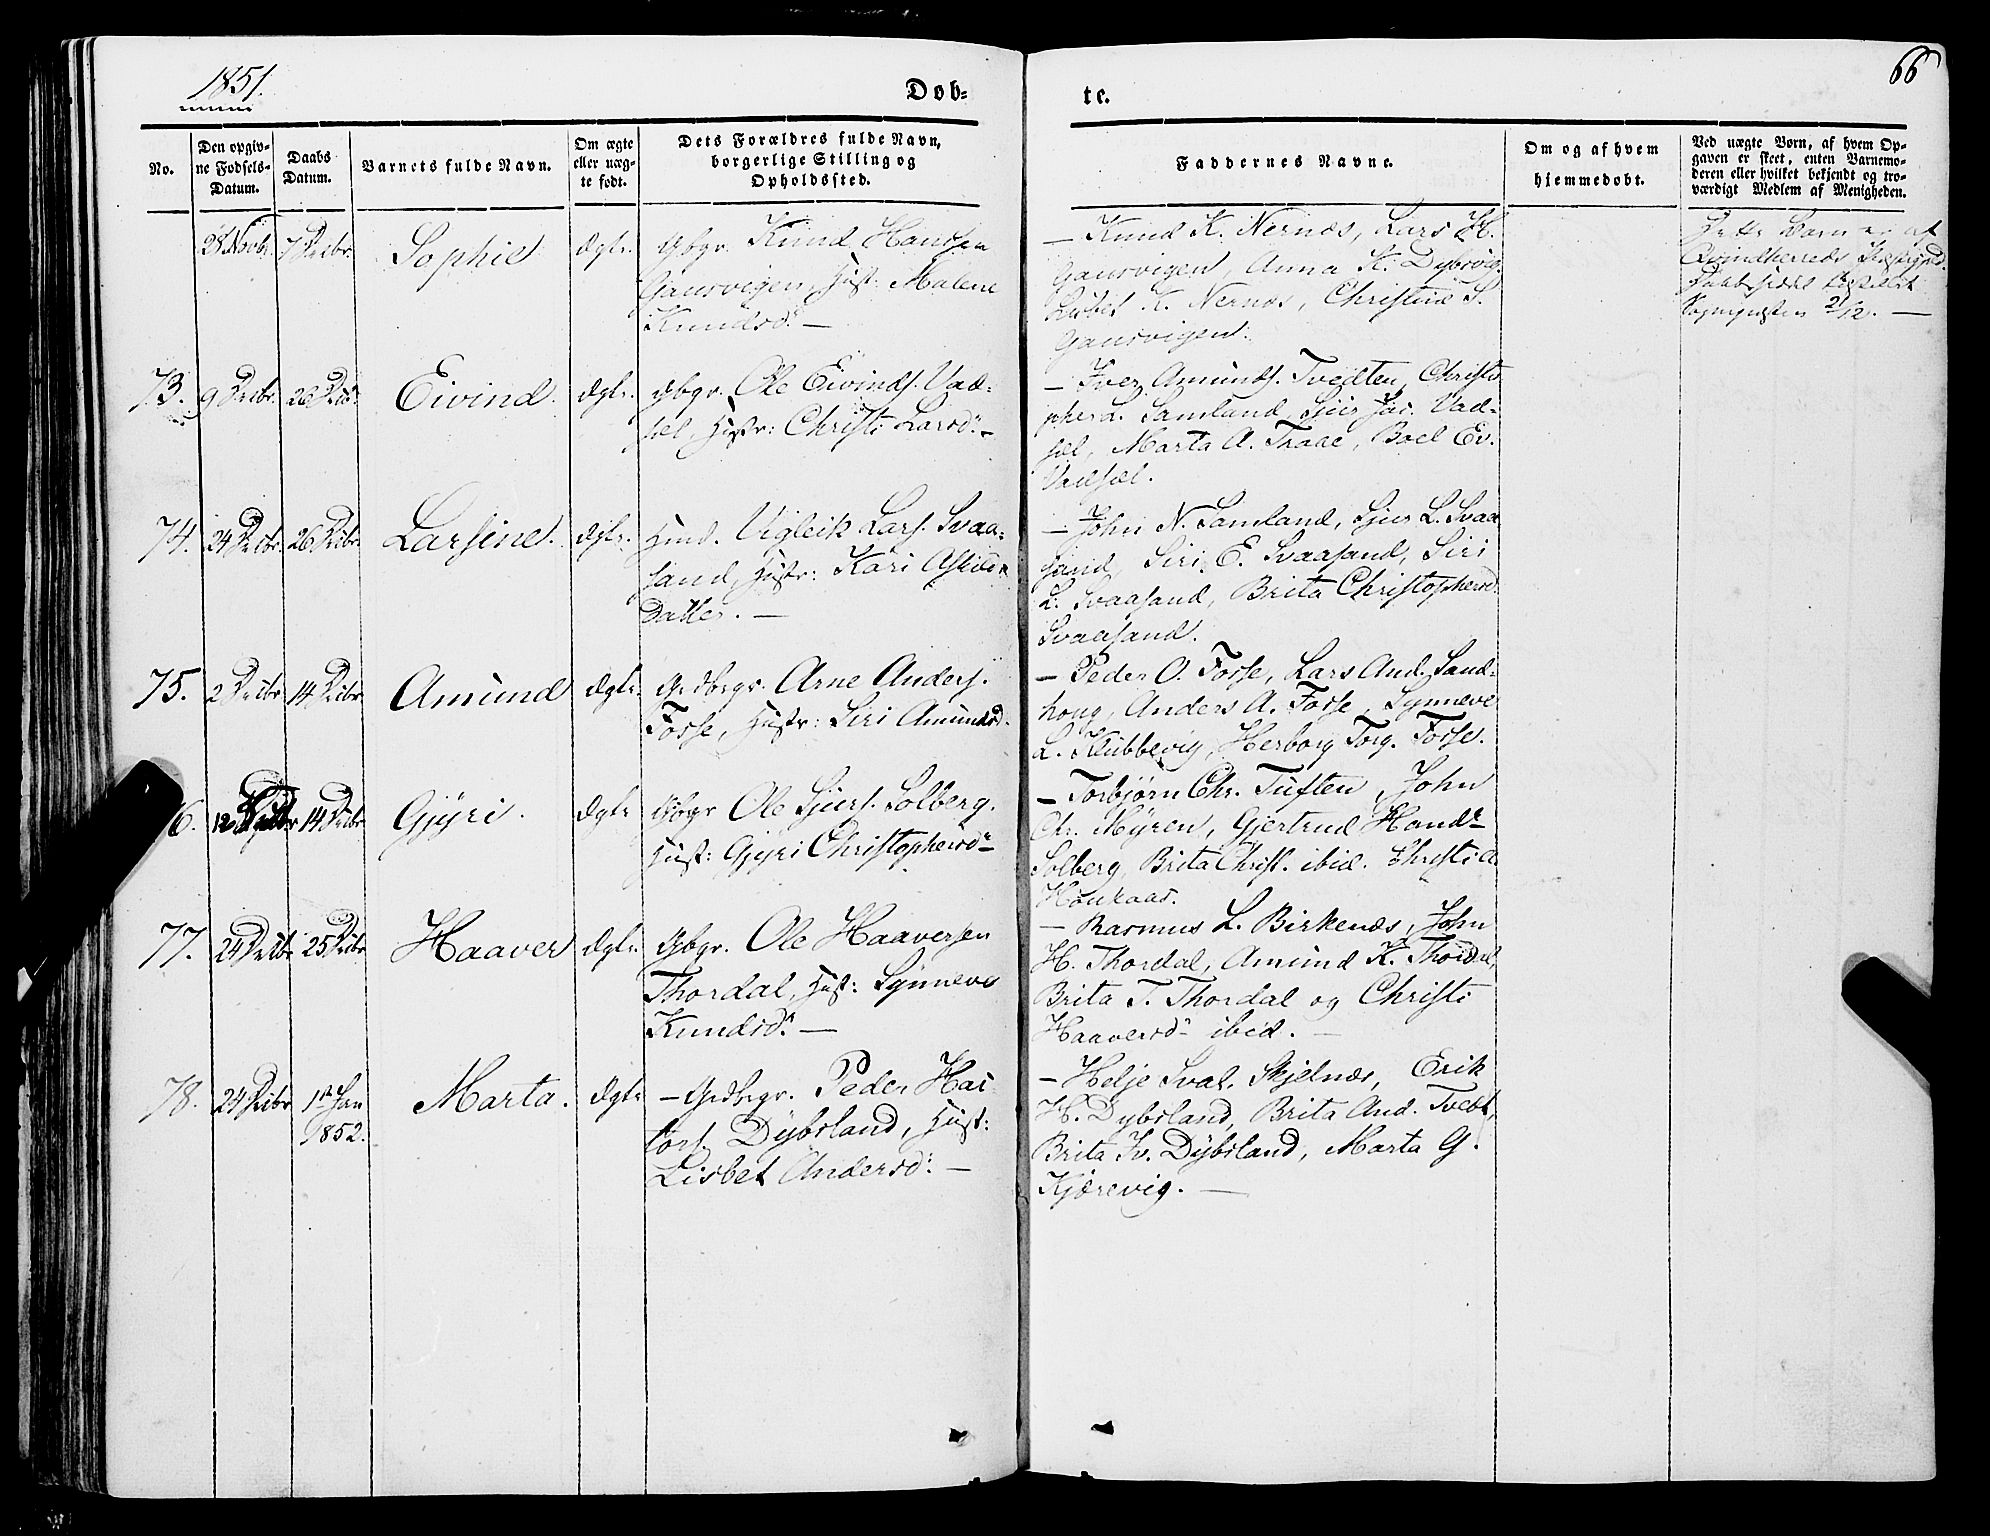 1851.
Døb-
te.
66
No.
Den opgiv-
ne Fødsels-
Datum.
Daabs
Datum.
Barnets fulde Navn.
Om ægte
eller uæg-
te født.
Dets Forældres fulde Navn,
borgerlige Stilling og
Opholdssted.
Faddernes Navne.
Om og af hvem
hjemmedøbt.
Ved uægte Børn, af hvem Op-
gaven er skeet, enten Barnemo-
deren eller hvilket bekjendt og tro-
værdigt Medlem af Menigheden.
28 Novbr. 7 Decbr. Sophie ægte. Gbgr. Knud Hansen
Gausvigen, Hust: Malene
Knudsd. —
— Knud K. Nernæs, Lars H.
Gausvigen, Anna K. Dybsvig,
Lisbet K. Nernæs, Christine S.
Gausvigen.
Dette Barn er af
Qvindherreds Præstegjeld.
2/12. —
73. 9 Decbr. 26 Dec. Eivind. ægte. Gbgr. Ole Eivinds. Vad-
sel, Hustr: Christi Larsd. –
— Iver Amunds. Tvedten, Christo
pher L. Samland, Vad-
sel, Marta A. Traae, Boel Ev.
Vadsel.
74. 24 Decbr. 26 Decbr. Larsine. ægte. Huusmd. Vigleik Lars. Svaa-
sand, Hustr: Kari Askilds
Datter. —
— John N. Samland, Sjur L. Svaa
sand, Siri E. Svaasand, Siri
L. Svaasand, Brita Christophersd.
Svaasand.
75. 2 Decbr. 14 Decbr. Amund ægte. Grdbrgr. Arne Anders.
Fosse, Hustr: Siri Amundsd.
— Peder O. Fosse, Lars And. Sand-
houg, Anders A. Fosse, Synneve
L. Klubbevig, Herborg Torg. Fosse.
6. 12 14 Decbr. Gjyri. ægte Gbgr Ole Sjurs. Solberg.
Hust: Gjyri Christophersd.
— Torbjørn Chr. Tuften, John
Chr. Myren, Gjertrud Hansd.
Solberg, Brita Christ. ibid. Christi A.
Houkaas.
77. 24 Decbr 25 Decbr Haaver ægte. Gbgr. Ole Haaversen
Thordal, Hust: Synneve
Knudsd. —
— Rasmus L. Birkenæs, John
H. Thordal, Amund K. Thordal,
Brita T. Thordal og Christi
Haaversd. ibid. —
78. 24 Decbr 1ste Jan
1852. Marta. ægte — Grdbrgr. Peder Hac-
tors. Dybsland, Hust:
Lisbet Andersd. —
— Helje Sval. Skjelnæs, Erik
H. Dybsland, Brita And. Tvedt,
Brita Iv. Dybsland, Marta G.
Kjærevig. —